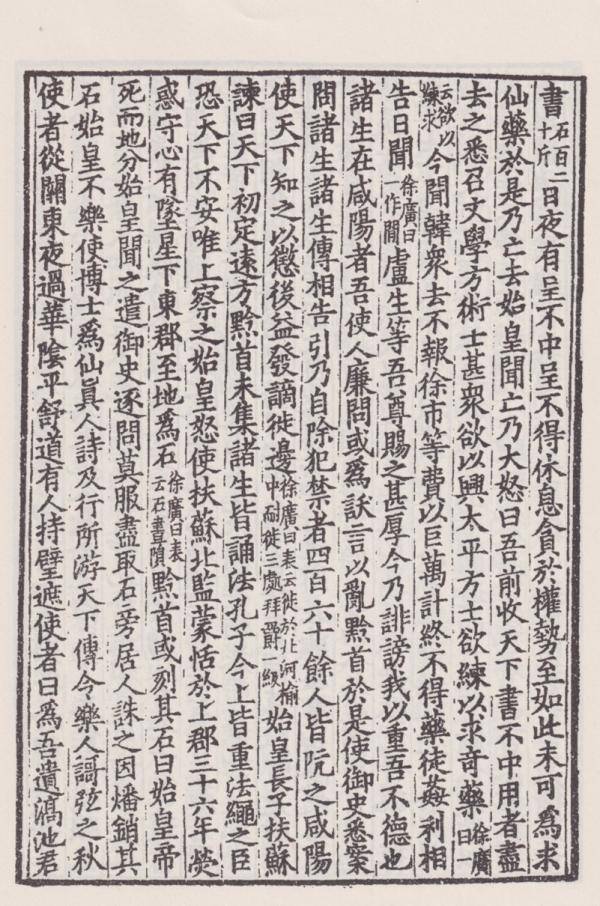 書石百二十斤日夜有呈不中呈不得休息貪於權勢至如此未可爲求
仙藥於是乃亡去始皇聞亡乃大怒曰吾前收天下書不中用者盡
去之悉召文學方術士甚衆欲以興太平方士欲練以求奇藥徐廣曰一
云欲以練求今聞韓衆去不報徐市等費以巨萬計終不得藥徒姦利相
告日聞徐廣曰一作間盧生等吾尊賜之甚厚今乃誹謗我以重吾不德也
諸生在咸陽者吾使人廉問或爲訞言以亂黔首於是使御史悉案
問諸生諸生傳相告引乃自除犯禁者四百六十餘人皆阬之咸陽
使天下知之以懲後益發謫徙邊徐廣曰表云徙於北河榆中耐徙三處拜爵一級始皇長子扶蘇
諫曰天下初定遠方黔首未集諸生皆誦法孔子今上皆重法繩之臣
恐天下不安唯上察之始皇怒使扶蘇北監蒙恬於上郡三十六年熒
惑守心有墜星下東郡至地爲石徐廣曰表云石晝隕黔首或刻其石曰始皇帝
死而地分始皇聞之遣御史逐問莫服盡取石旁居人誅之因燔銷其
石始皇不樂使博士爲仙眞人詩及行所游天下傳令樂人謌弦之秋
使者從關東夜過華陰平舒道有人持璧遮使者曰爲吾遺滈池君